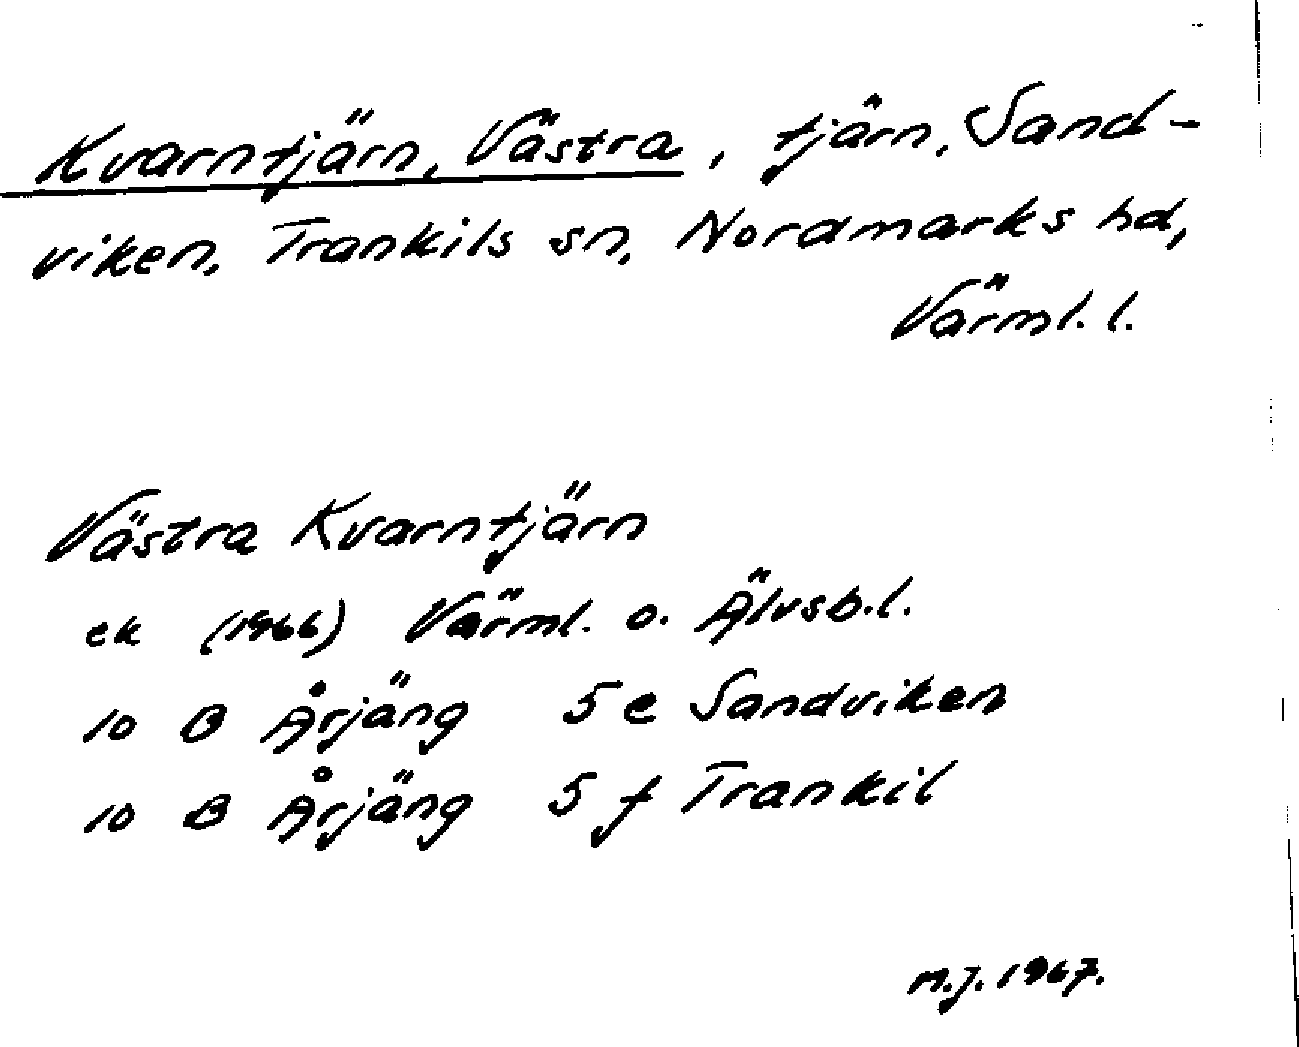 Kvarntjärn, Västra, tjärn, Sand-
viken, Trankils sn, Nordmarks hd,
Värml. l.
Västra Kvarntjärn
ek (1966) Värml. o. Älvsb. l.
10 B Årjäng 5 e Sandviken
10 B Årjäng 5 f Trankil
M.J. 1967.